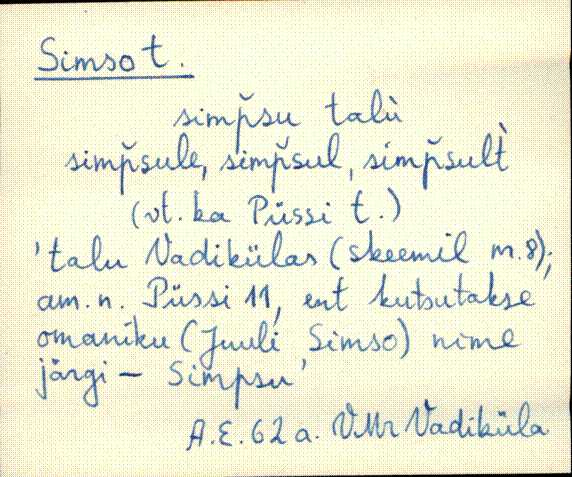 Simso t.
simp̆su talù
simp̆sule, simp̆sul, simp̆sult̀
(vt. ka Püssi t.)
'talu Vadikülas (skeemil m.8);
am.n. Püssi 11, ent kutsutakse
omaniku (Juuli Simso) nime
järgi – Simpsu'
A.E. 62 a. VMr Vadiküla